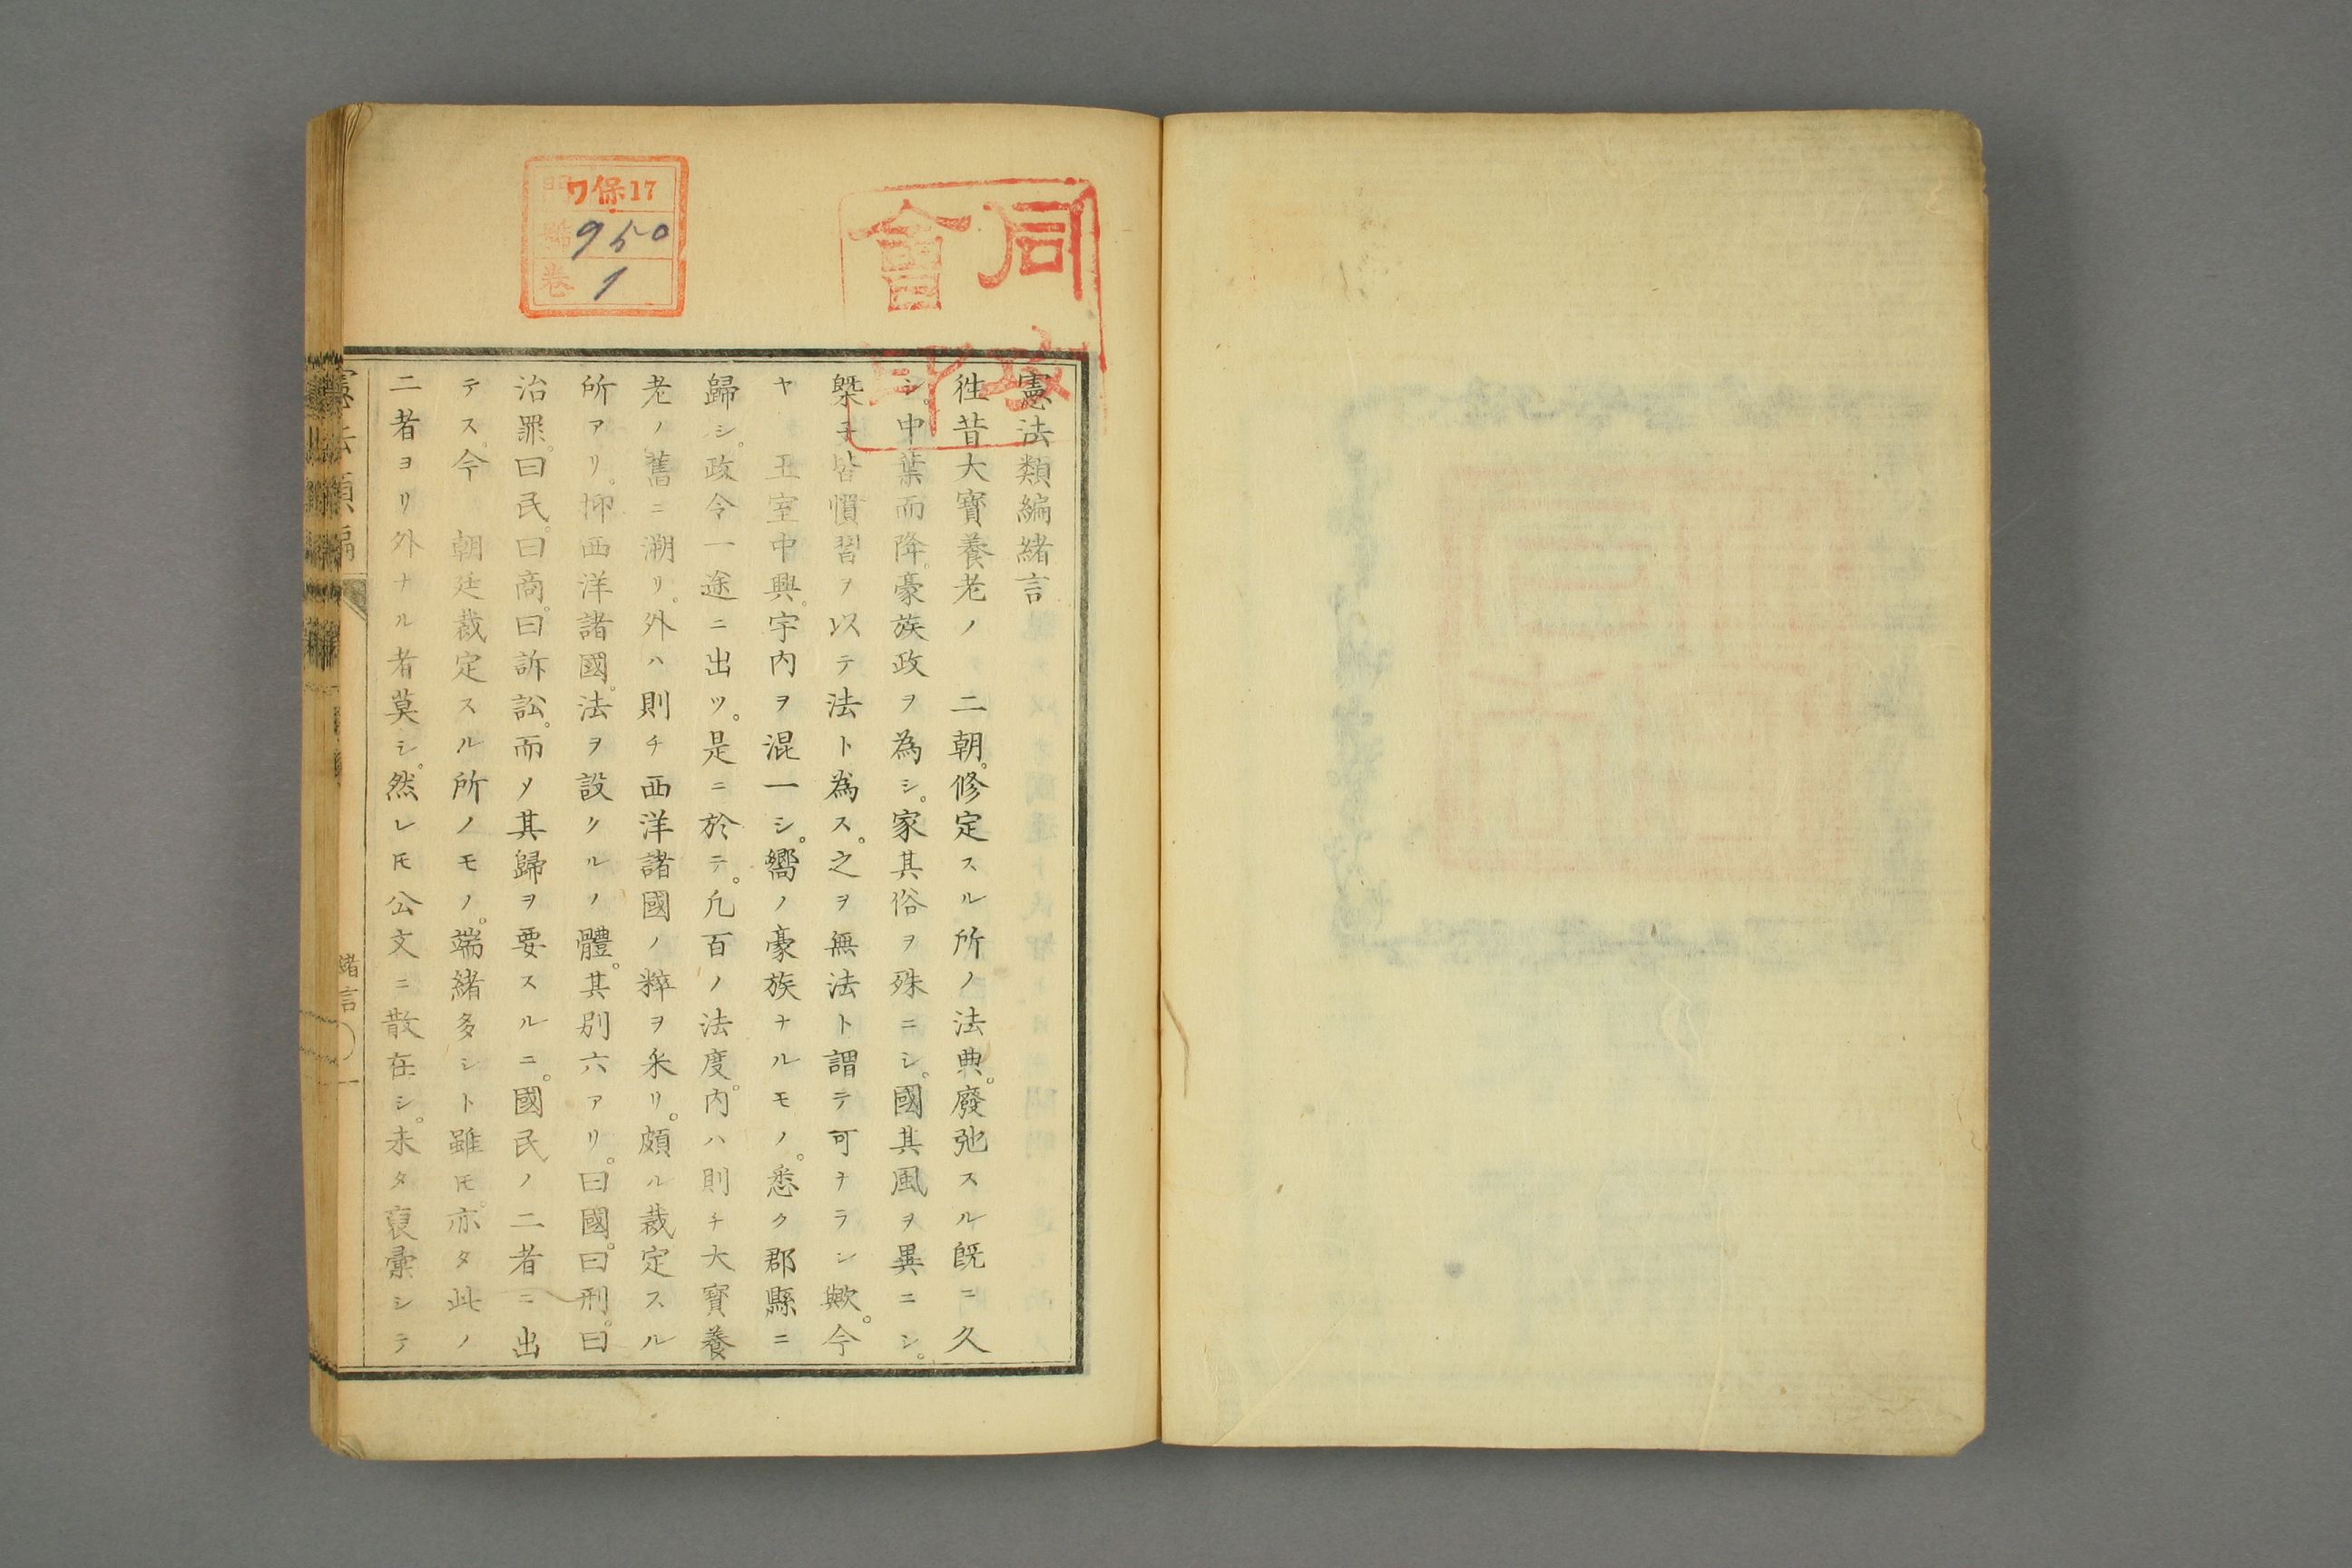 憲法類編緒言
徃昔大寶養老ノ　二朝。修定スル所ノ法典。廢弛スル既ニ久
シ。中葉而降。豪族政ヲ為シ。家其俗ヲ殊ニシ。國其風ヲ異ニシ。
槩子皆慣習ヲ以テ法ト為ス。之ヲ無法ト謂テ可ナラン歟。今
ヤ　王室中興。宇内ヲ混一シ。嚮ノ豪族ナルモノ。悉ク郡縣ニ
歸シ。政令一途ニ出ツ。是ニ於テ。凢百ノ法度。内ハ則チ大寶養
老ノ舊ニ溯リ。外ハ則チ西洋諸國ノ粹ヲ采リ。頗ル裁定スル
所アリ。抑西洋諸國。法ヲ設クルノ體。其別六アリ。曰國。曰刑。曰
治罪。曰民。曰商。曰訴訟。而〆其歸ヲ要スルニ。國民ノ二者ニ出
テス。今　朝廷裁定スル所ノモノ。端緒多シト雖𪜈。亦タ此ノ
二者ヨリ外ナル者莫シ。然レ𪜈公文ニ散在シ。未タ裒彙シテ
憲法類編
緒言
一
ワ保17
950
卷 1
同
會
印